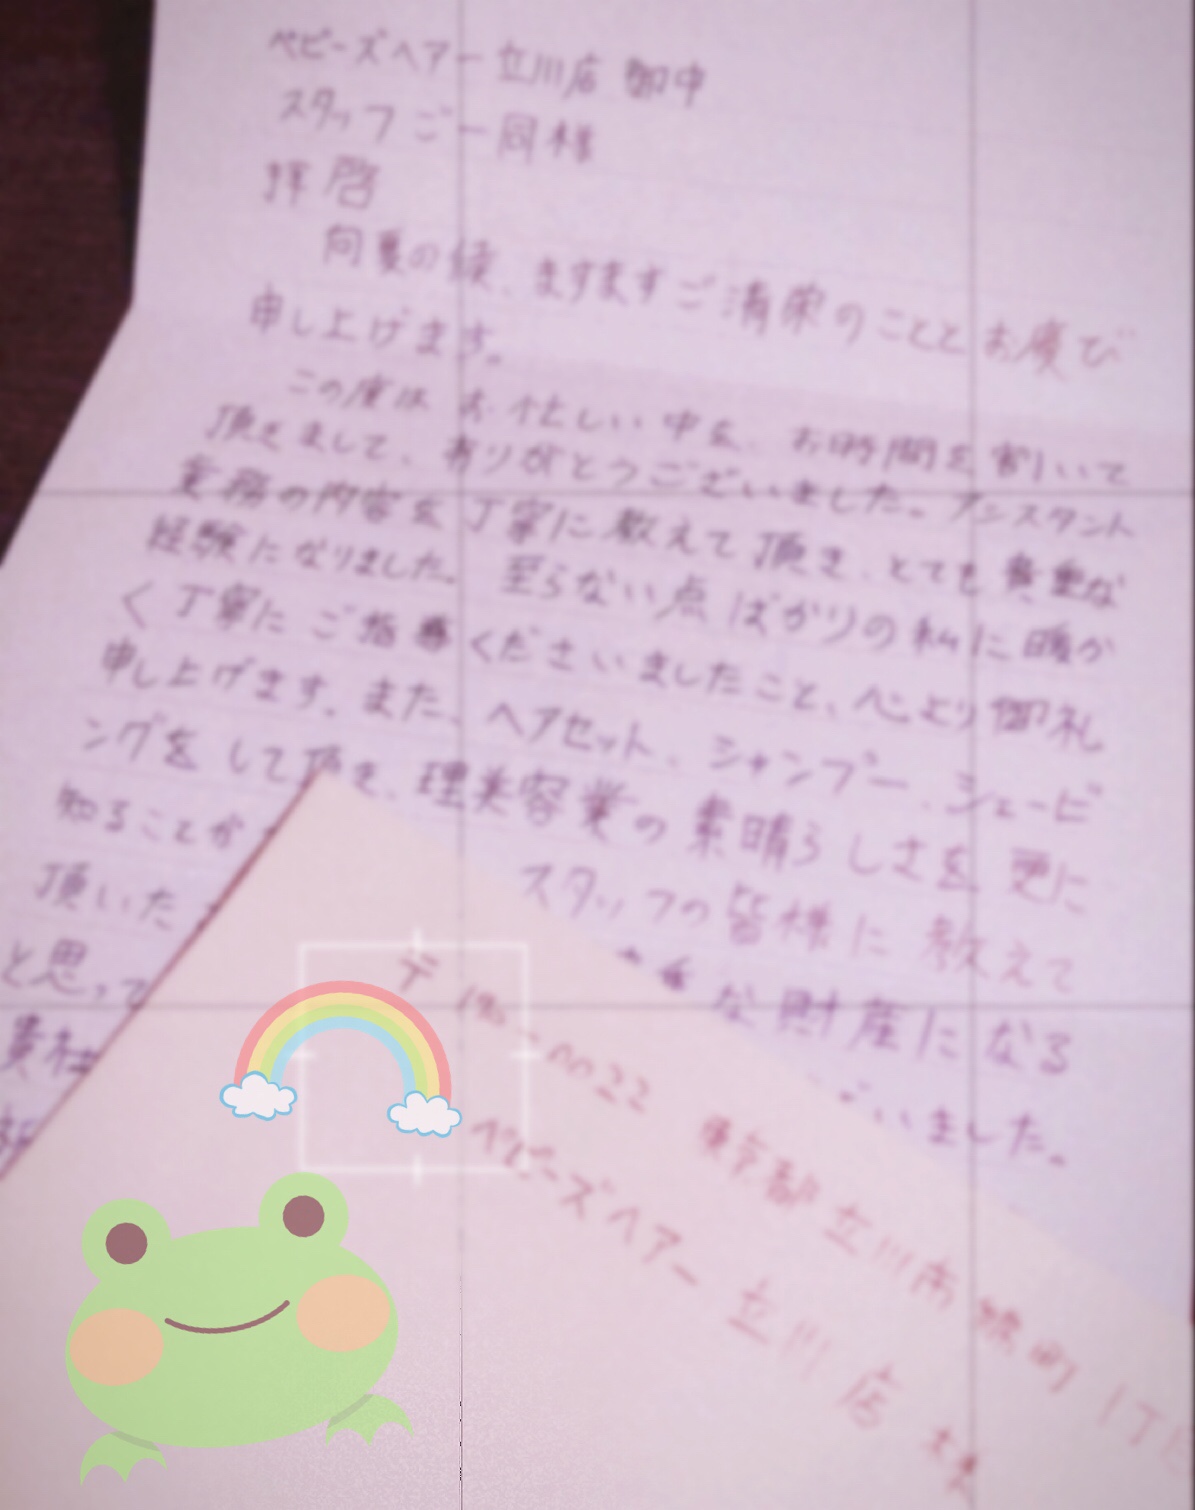 ベビーズヘアー立川店 御中
スタッフご一同様
拝啓
向夏の候、ますますご清栄のこととお慶び
申し上げます。
この度はお忙しい中を、お時間を割いて
頂きまして、有りがとうございました。アシスタント
業務の内容を丁寧に教えて頂き、とても貴重な
経験になりました。至らない点ばかりの私に暖か
く丁寧にご指導くださいましたこと、心より御礼
申し上げます。また、ヘアセット、シャンプー、シェービ
ングをして頂き、理美容業の素晴らしさを更に
知ることが
スタッフの皆様に教えて
頂いた
な財産になる
と思って
いました。
貴社
〒
東京都立川市 町1丁目
ベビーズヘアー 立川店